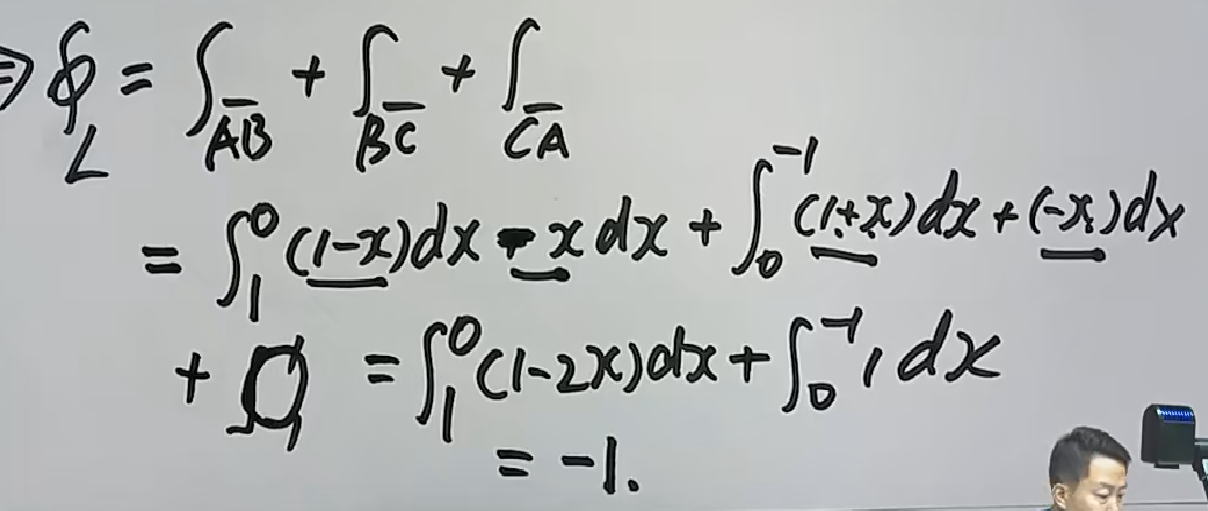 ⇒ ∮_L = ∫_{\overline{AB}} + ∫_{\overline{BC}} + ∫_{\overline{CA}}
= ∫_1^0 (1-x)dx - x dx + ∫_0^{-1} (1+x)dx + (-x)dx
+ 0 = ∫_1^0 (1-2x)dx + ∫_0^{-1} 1 dx
= -1.